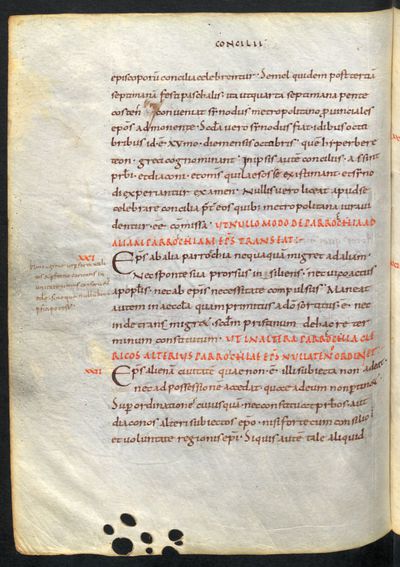 CONCILII
episcoporū concilia celebrentur. Semel quidem post tertiā
septimanā festi paschalis. ita ut quarta septimana pente
costen conveniat synodus metropolitano provinciales
epōs admonente. Secda vero synodus fiat idibus octo
bribus id ē XV mo die mensis octobris quē hyperbere
teon greci cognominant. In ipsis autē conciliis assint
prbi et diaconi et omīs qui laesos se existimant et syno
di experiantur examen. Nullis vero liceat apud se
celebrare concilia p̄t eos quib; metropolitana iura vi
dentur eē comissa. UT NULLO MODO DE PARROCHIA AD
ALIAM PARROCHIAM EPS TRANSEAT.
XXI
Eps ab alia parrochia nequaquā migret ad aliam.
Nec sponte sua prorsus insiliens. nec vi coactus
a poplis. nec ab epis necessitate compulsus. Maneat
autem in aeccla quam primitus a dō sortitus ē. nec
inde transmigret scdm pristinum de hac re ter
minum constitutum. UT IN ALTERA PARROCHIA CLE
RICOS ALTERIUS PARROCHIAE EPS NULLATEN; ORDINET
XXII
Eps alienā civitatē quae non ē illi subiecta non adeat.
nec ad possessionē accedat quae ad eum non ptinet.
Sup ordinationē cuiusquā nec constituat prbos aut
diaconos alteri subiectos epo. nisi forte cum consilio
et voluntate regionis epi. Siquis autē tale aliquid